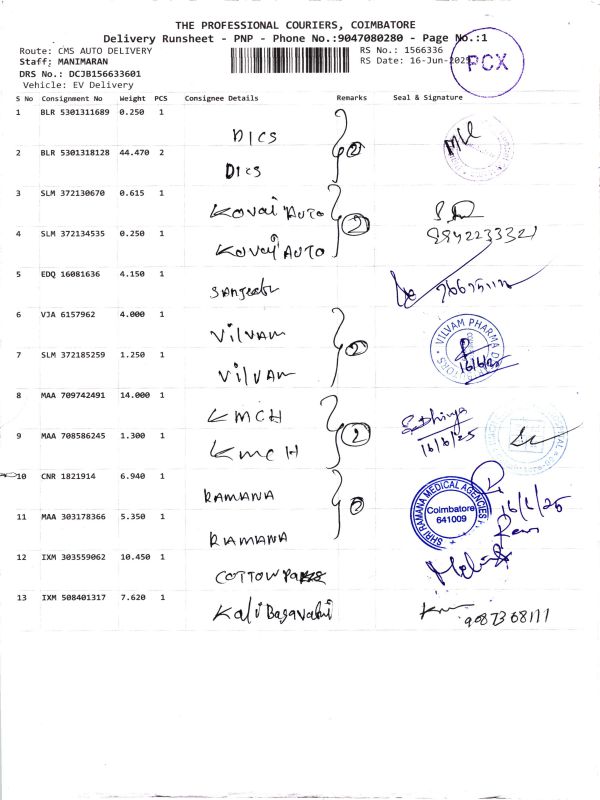 THE PROFESSIONAL COURIERS, COIMBATORE
Delivery Runsheet - PNP - Phone No.:9047080280 - Page No.:1
Route: CMS AUTO DELIVERY
RS No.: 1566336
Staff: MANIMARAN
RS Date: 16-Jun-2025
PCX
DRS No.: DCJB156633601
Vehicle: EV Delivery
S No Consignment No Weight PCS Consignee Details Remarks Seal & Signature
1 BLR 5301311689 0.250 1
DICS
2
2 BLR 5301318128 44.470 2
DICS
3 SLM 372130670 0.615 1
KOVAI AUTO
2
4 SLM 372134535 0.250 1
KOVAI AUTO
8942233321
5 EDQ 16081636 4.150 1
6 VJA 6157962 4.000 1
VilVAM
2
VILVAM PHARMA
16/6/25
7 SLM 372185259 1.250 1
VilVAM
8 MAA 709742491 14.000 1
KMCH
2
16/6/25
9 MAA 708586245 1.300 1
KMCH
10 CNR 1821914 6.940 1
RAMANA
SHRI RAMANA MEDICAL AGENCIES
Coimbatore
641009
16/6/25
11 MAA 303178366 5.350 1
RAMANA
12 IXM 303559062 10.450 1
13 IXM 508401317 7.620 1
Kali Bagavathi
9087368111